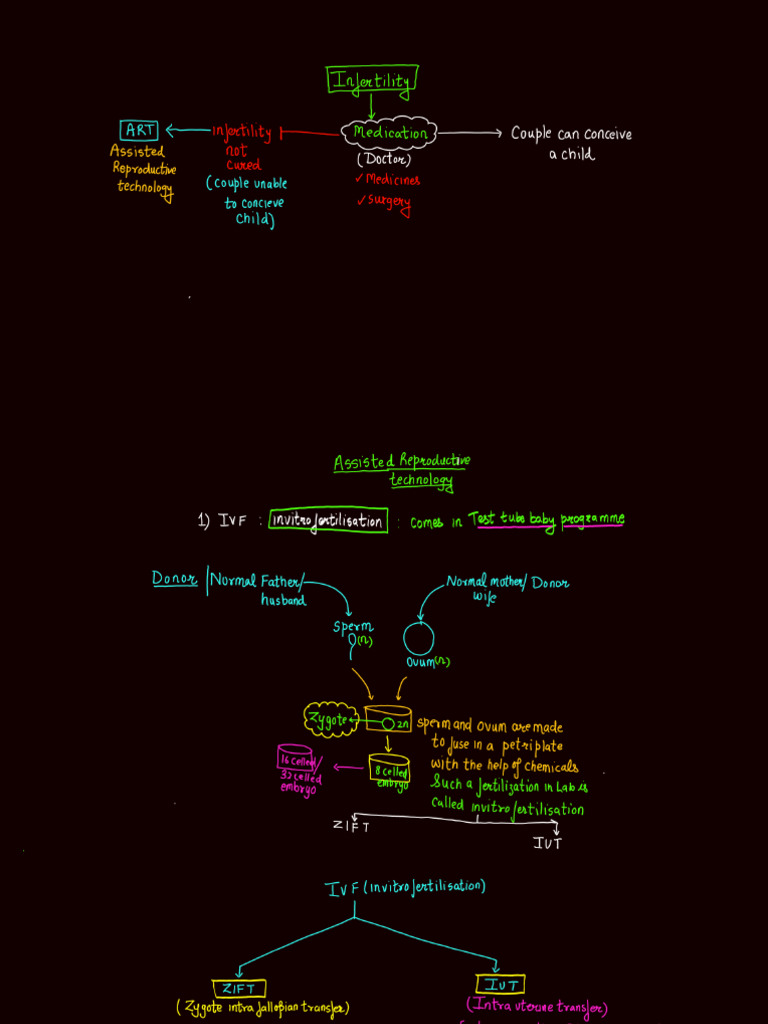 Infertility
ART
infertility
not
cured
(couple unable
to concieve
child)
Medication
(Doctor)
✓ Medicines
✓ surgery
Couple can conceive
a child
Assisted
Reproductive
technology
Assisted Reproductive
technology
1) IVF : invitrofertilisation : comes in Test tube baby programme
Donor / Normal Father/
husband
Normal mother/ Donor
wife
sperm
(n)
ovum(n)
Zygote
2n
16 celled/
32 celled
embryo
8 celled
embryo
sperm and ovum are made
to fuse in a petriplate
with the help of chemicals
Such a fertilization in Lab is
called invitrofertilisation
ZIFT
IUT
IVF (invitrofertilisation)
ZIFT
(Zygote intra fallopian transfer)
IUT
(Intra uterine transfer)